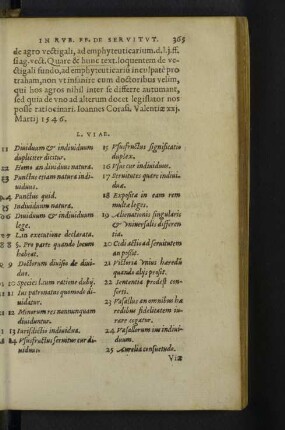 IN RVB. FF. DE SERVITVT. 365
de agro vectigali, ad emphyteuticarium. d. l. j. ff.
si ag. vect. Quare & hunc text. loquentem de ve-
ctigali fundo, ad emphyteutarii
traham, non vt insaniæ cum doctoribus velim,
qui hos agros nihil inter se differre autumant,
sed quia de vno ad alterum docet legislator nos
posse ratiocinari. Ioannes Corasi. Valentiæ xxj.
Martij 1546.
L. VIAE.
11 Diuiduum & indiuiduum
dupliciter dicitur.
22 Homo an diuidus natura.
33 Punctus etiam natura indi-
uiduus.
4 Punctus quid.
5 Indiuiduum natura.
6 Diuiduum & indiuiduum
lege.
7 L. in executione declarata.
8 §. Pro parte quando locum
habeat.
9 Doctorum diuisio de diui-
duo.
10 Species locum ratione dubij.
11 Ius patronatus quomodo di-
uidatur.
12 Minorem res nonnunquam
diuiduntur.
13 Iurisdictio indiuidua.
14 Vsusfructus seruitur cur di-
uiduus.
15 Vsusfructus significatio
duplex.
16 Vsus cur indiuiduus.
17 Seruitutes quare indiui-
duæ.
18 Exposita in eam rem
multa leges.
19 Alienationis singularis
& vniuersalis differen-
tia.
20 Cõdictio ad seruitutem
an possit.
21 Victoria vnius hæredũ
quando alijs prosit.
22 Sententia prodest con-
sorti.
23 Vasallus an omnibus hæ
redibus fidelitatem iu-
rare cogatur.
24 Vasallorum ius indiui-
duum.
25 Aurelia consuetudo.
Viæ